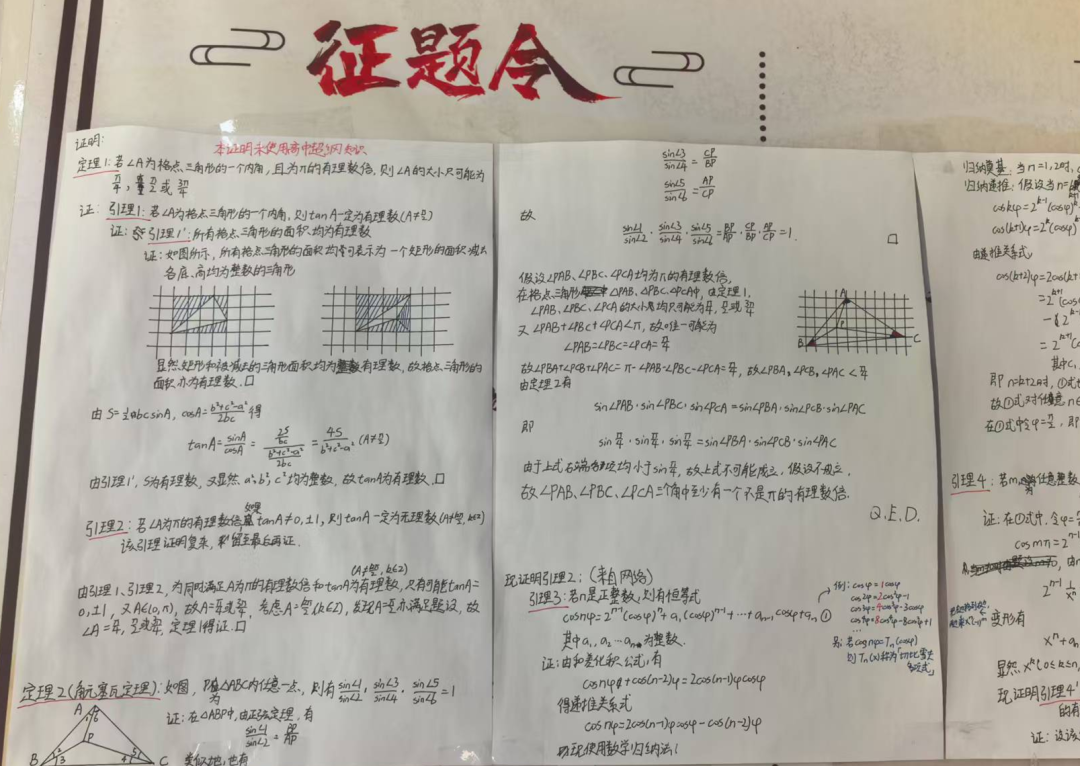 征题令
证明:
本证明未使用高中超纲知识
定理1:若∠A为格点三角形的一个内角,且为π的有理数倍,则∠A的大小只可能为
π/4,π/2或3π/4
证:引理1:若∠A为格点三角形的一个内角,则tanA一定为有理数(A≠π/2)
证:引理1′:所有格点三角形的面积均为有理数
证:如图所示,所有格点三角形的面积均可表示为一个矩形的面积减去
各底、高均为整数的三角形
显然矩形和被减去的三角形面积均为有理数,故格点三角形的
面积亦为有理数.□
由S=½bcsinA,cosA=(b²+c²-a²)/2bc得
tanA=sinA/cosA=(2S/bc)/((b²+c²-a²)/2bc)=4S/(b²+c²-a²),(A≠π/2)
由引理1′,S为有理数,又显然a²,b²,c²均为整数,故tanA为有理数.□
引理2:若∠A为π的有理数倍,如果tanA≠0,±1,则tanA一定为无理数(A≠kπ/2,k∈Z)
该引理证明复杂,留至最后再证.
(A≠kπ/2,k∈Z)
由引理1、引理2,为同时满足A为π的有理数倍和tanA为有理数,只有可能tanA=
0,±1,又A∈(0,π),故A=π/4或3π/4,考虑A=kπ/2(k∈Z),发现A=π/2亦满足题设,故
∠A=π/4,π/2或3π/4,定理1得证.□
定理2(角元塞瓦定理):如图,P为△ABC内任意一点,则有sin∠1/sin∠2·sin∠3/sin∠4·sin∠5/sin∠6=1
证:在△ABP中,由正弦定理,有
sin∠1/sin∠2=BP/AP
A
P
B
C
类似地,也有
sin∠3/sin∠4=CP/BP
sin∠5/sin∠6=AP/CP
故
sin∠1/sin∠2·sin∠3/sin∠4·sin∠5/sin∠6=BP/AP·CP/BP·AP/CP=1.
□
假设∠PAB、∠PBC、∠PCA均为π的有理数倍,
在格点三角形△PAB、△PBC、△PCA中,由定理1,
∠PAB、∠PBC、∠PCA的大小均只可能为π/4,π/2或3π/4
又∠PAB+∠PBC+∠PCA<π,故唯一可能为
∠PAB=∠PBC=∠PCA=π/4
A
P
B
C
故∠PBA+∠PCB+∠PAC=π-∠PAB-∠PBC-∠PCA=π/4,故∠PBA,∠PCB,∠PAC<π/4
由定理2有
sin∠PAB·sin∠PBC·sin∠PCA=sin∠PBA·sin∠PCB·sin∠PAC
即
sinπ/4·sinπ/4·sinπ/4=sin∠PBA·sin∠PCB·sin∠PAC
由于上式右端各项均小于sinπ/4,故上式不可能成立,假设不成立.
故∠PAB、∠PBC、∠PCA三个角中至少有一个不是π的有理数倍.
Q.E.D.
现证明引理2:(来自网络)
引理3:若n是正整数,则有恒等式
cosnφ=2ⁿ⁻¹(cosφ)ⁿ+a₁(cosφ)ⁿ⁻¹+…+aₙ₋₁cosφ+aₙ ①
其中a₁,a₂…aₙ为整数.
例:cosφ=1cosφ
cos2φ=2cos²φ-1
cos3φ=4cos³φ-3cosφ
cos4φ=8cos⁴φ-8cos²φ+1
…
若cosnφ=Tₙ(cosφ)
则Tₙ(x)称为「切比雪夫
多项式」
证:由和差化积公式,有
cosnφ+cos(n-2)φ=2cos(n-1)φcosφ
得递推关系式
cosnφ=2cos(n-1)φcosφ-cos(n-2)φ
现使用数学归纳法:
归纳奠基:当n=1,2时,
归纳递推:假设当n=k
coskφ=2ᵏ⁻¹(cosφ)ᵏ
cos(k+1)φ=2ᵏ(cosφ)
由递推关系式,
cos(k+2)φ=2cos(k+
=2ᵏ⁺¹(cos
=2ᵏ⁺¹(c
其中c₁
即n=k+2时,①式
故①式对任意n∈
在①式中令φ=
引理4:若m,n为任意整数
证:在①式中,令φ=
cosmπ=2ⁿ⁻¹
2ⁿ⁻¹
变形有
xⁿ+a
显然
现证明引理4′
的有
证:设该